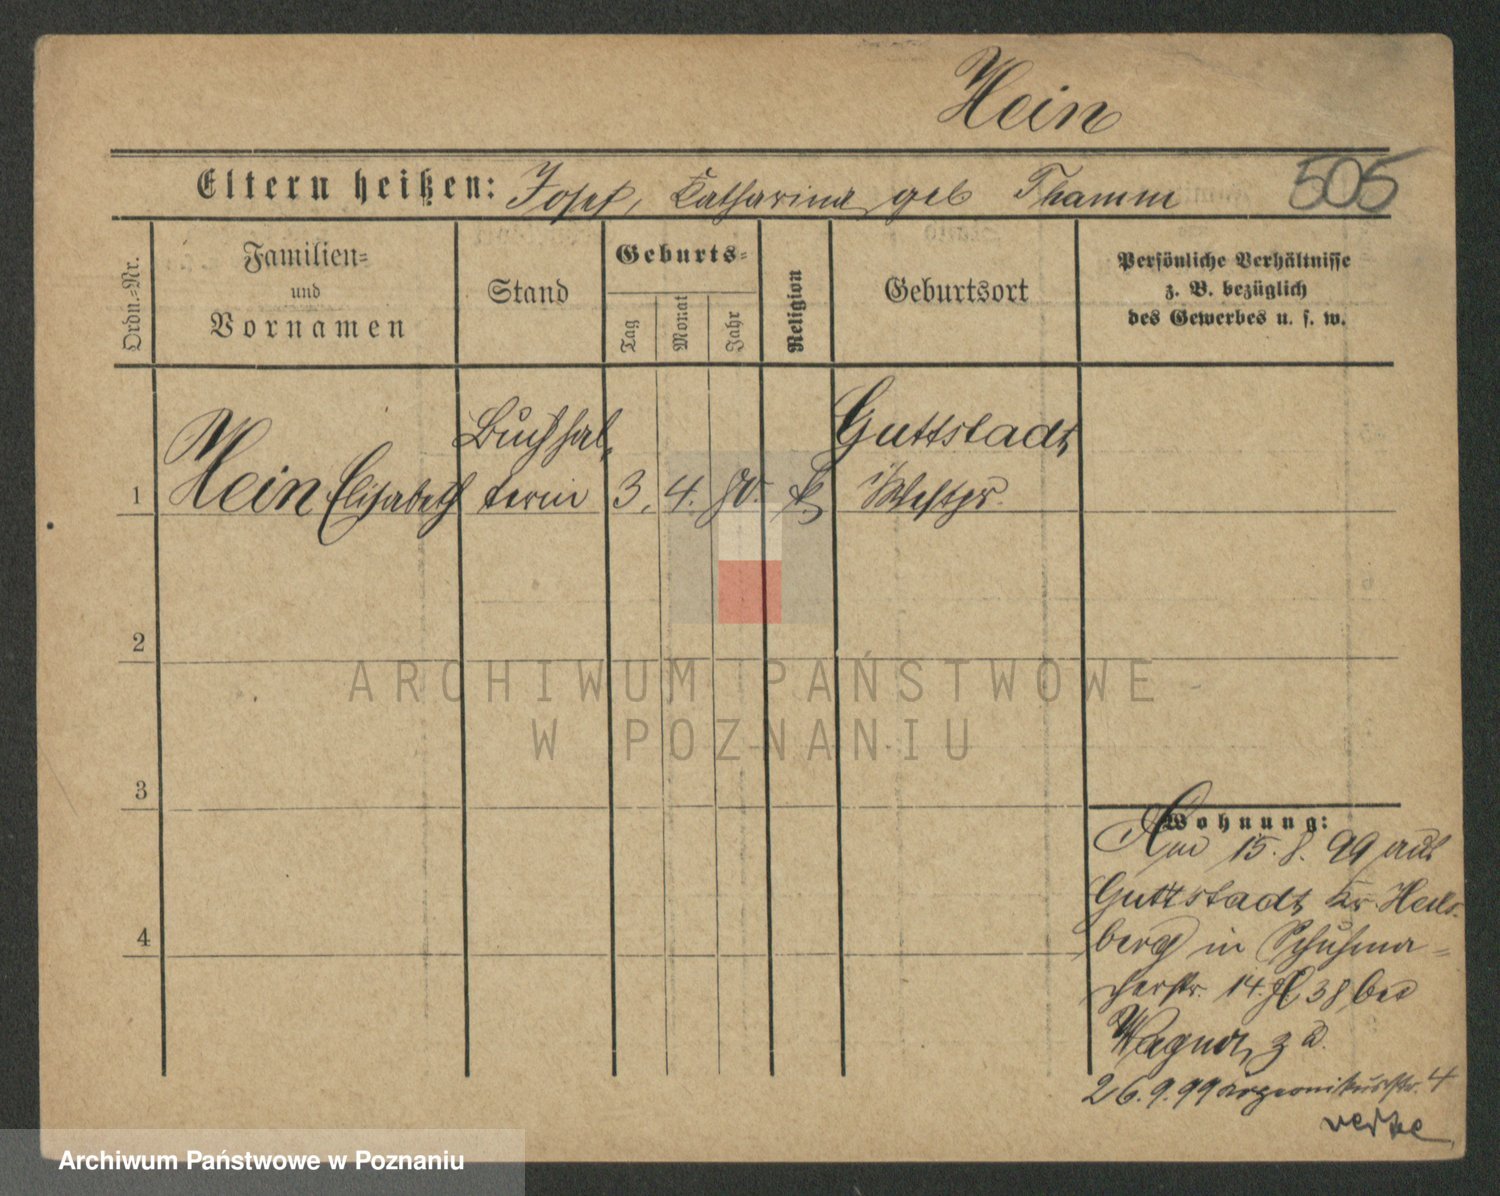 Hein
Eltern heißen: Josef, Katharina geb Thamm
505
Ordn.-Nr.
Familien-
und
Vornamen
Stand
Geburts-
Tag
Monat
Jahr
Religion
Geburtsort
Persönliche Verhältnisse
z. B. bezüglich
des Gewerbes u. s. w.
Buchhal,
Guttstadt
1 Hein Elisabeth terin 3. 4. 80. k Westpr.
2
ARCHIWUM PAŃSTWOWE
W POZNANIU
3
Wohnung:
Am 15.8.99 aus
Guttstadt Kr. Heils-
4
berg in Schuhma-
cherstr. 14. 38 bei
Wagner, z
26.9.99 4
Archiwum Państwowe w Poznaniu